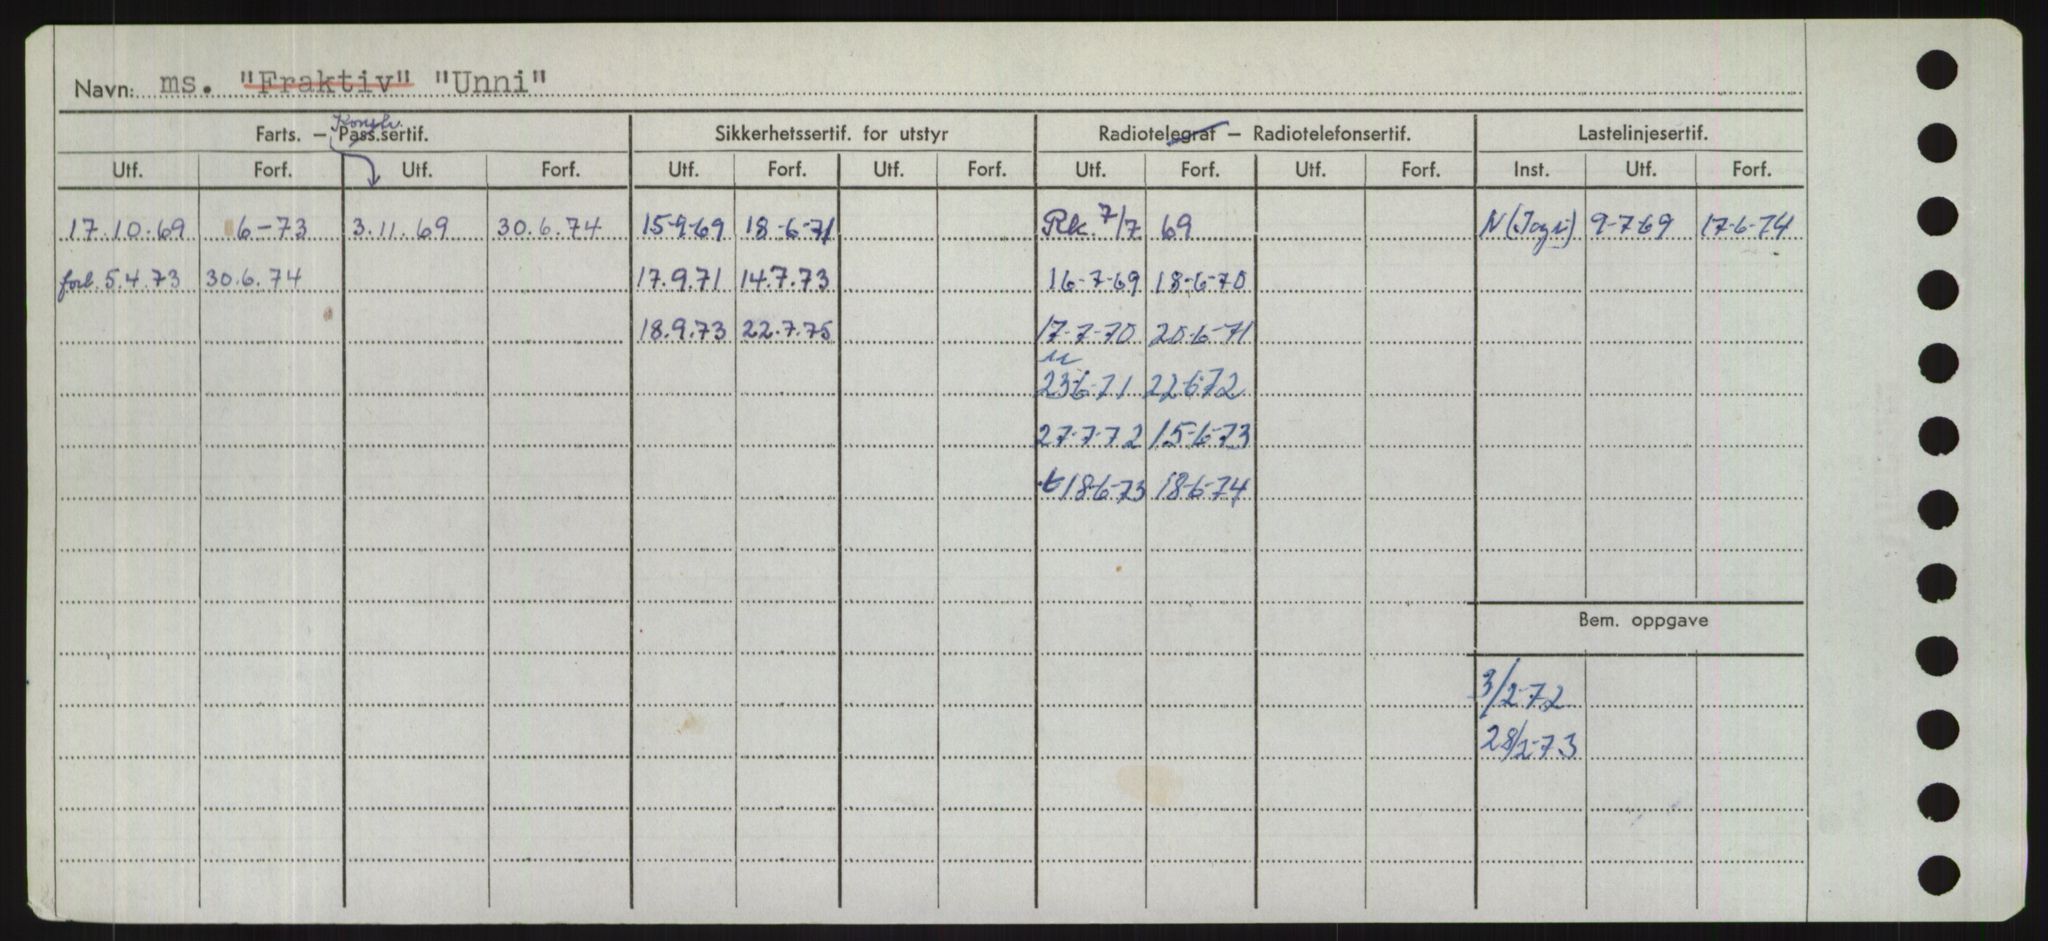 Navn: ms. "Fraktiv" "Unni"
Konstr.
Farts. — Pass.sertif. Sikkerhetssertif. for utstyr Radiotelegraf — Radiotelefonsertif. Lastelinjesertif.
Utf. Forf. Utf. Forf. Utf. Forf. Utf. Forf. Utf. Forf. Utf. Forf. Inst. Utf. Forf.
17.10.69 6-73 3.11.69 30.6.74 15-9-69 18-6-71 Rk. 7/7 69 N 9-7-69 17-6-74
forl. 5.4.73 30.6.74 17.9.71 14.7.73 16-7-69 18-6-70
18.9.73 22.7.75 17-7-70 20-6-71
u
23-6-71 22-6-72
27-7-72 15-6-73
t 18-6-73 18-6-74
Bem. oppgave
3/2-72
28/2-73